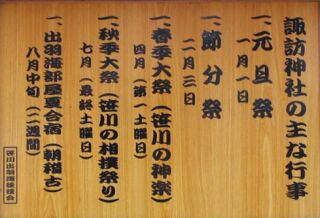 諏訪神社の主な行事
一、元旦祭
一月一日
一、節分祭
二月三日
一、春季大祭（笹川の神楽）
四月（第一土曜日）
一、秋季大祭（笹川の相撲祭り）
七月（最終土曜日）
一、出羽海部屋夏合宿（朝稽古）
八月中旬（一週間）
笹川出羽海後援会